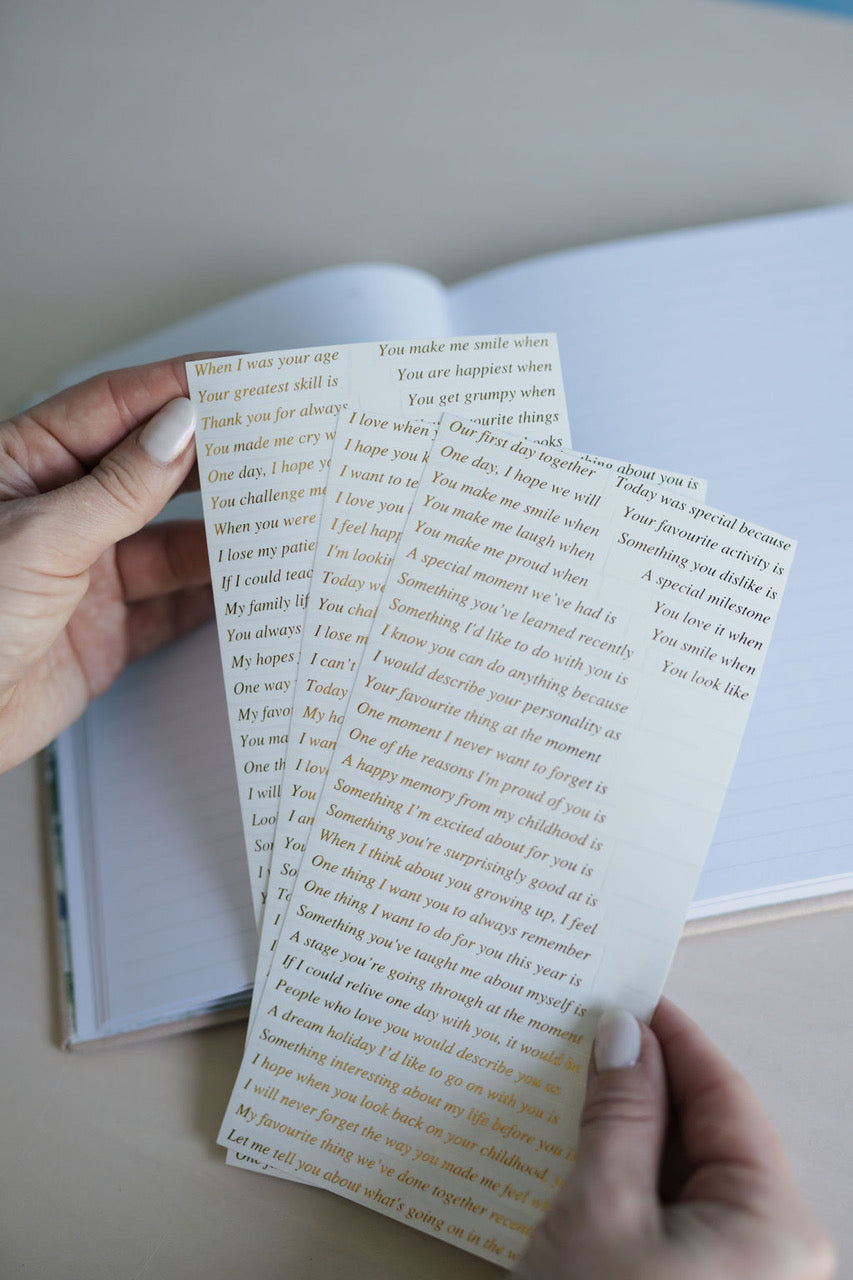 When I was your age
Your greatest skill is
Thank you for always
You made me cry
One day, I hope
You challenge me
When you were
I lose my
If I could
My family
You always
My hopes
One way
My
You
One
I will
I
You make me smile when
You are happiest when
You get grumpy when
things
about you is
I love when
I hope you
I want to
I love you
I feel
I'm
Today
You
I lose
I can't
Today
My
I
I love
You
I
You
I
Our first day together
One day, I hope we will
You make me smile when
You make me laugh when
You make me proud when
A special moment we've had is
Something you've learned recently
Something I'd like to do with you is
I know you can do anything because
I would describe your personality as
Your favourite thing at the moment
One moment I never want to forget is
One of the reasons I'm proud of you is
A happy memory from my childhood is
Something I'm excited about for you is
Something you're surprisingly good at is
When I think about you growing up, I feel
One thing I want you to always remember
One thing I want to do for you this year is
Something you've taught me about myself is
A stage you're going through at the moment
If I could relive one day with you, it would be
People who love you would describe you as
A dream holiday I'd like to go on with you is
Something interesting about my life before you is
I hope when you look back on your childhood,
I will never forget the way you made me feel
My favourite thing we've done together
Let me tell you about what's going on in the
Today was special because
Your favourite activity is
Something you dislike is
A special milestone
You love it when
You smile when
You look like